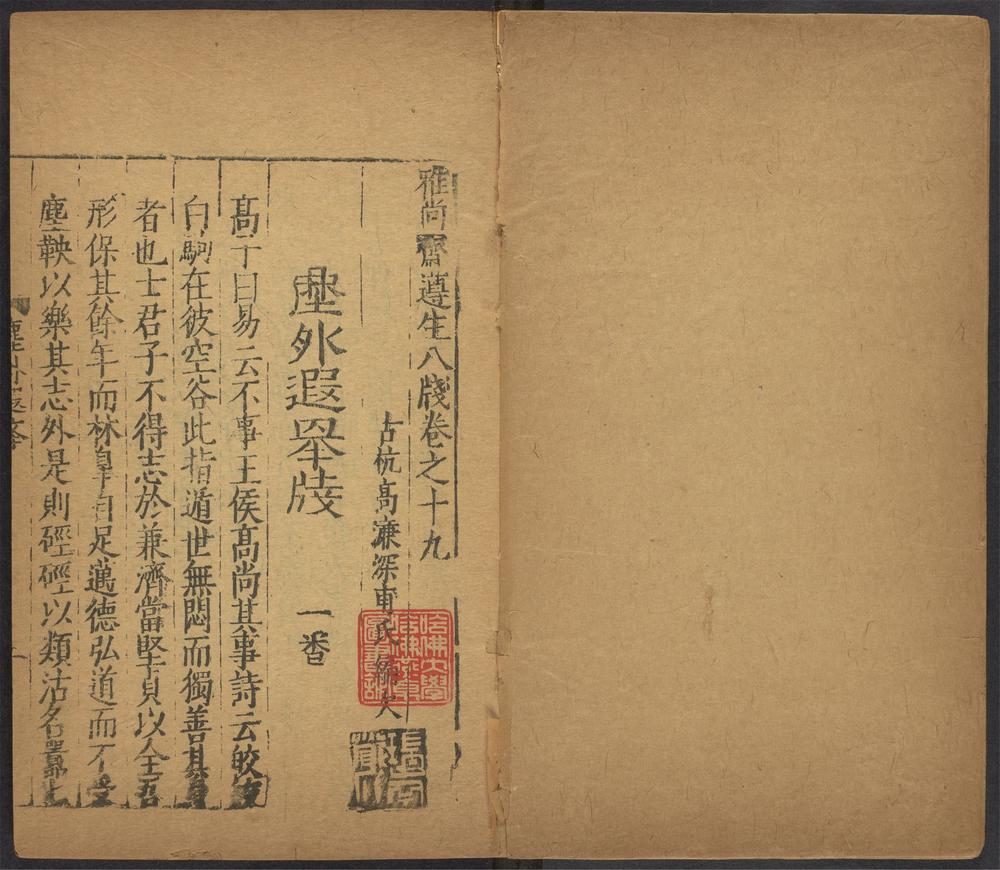 雅尚齋遵生八牋卷之十九
古杭高濂深甫氏編次
塵外遐舉牋
一番
高子曰易云不事王侯高尚其事詩云皎皎
白駒在彼空谷此指遁世無悶而獨善其身
者也士君子不得志於兼濟當堅貞以全吾
形保其餘年而林臯自足邁德弘道而不受
塵鞅以樂其志外是則硜硜以類沽名囂
塵外遐舉
哈佛大學
哈佛燕京
圖書館